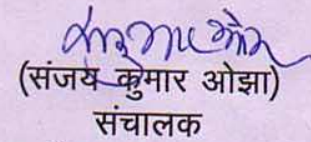 (संजय कुमार ओझा)
संचालक